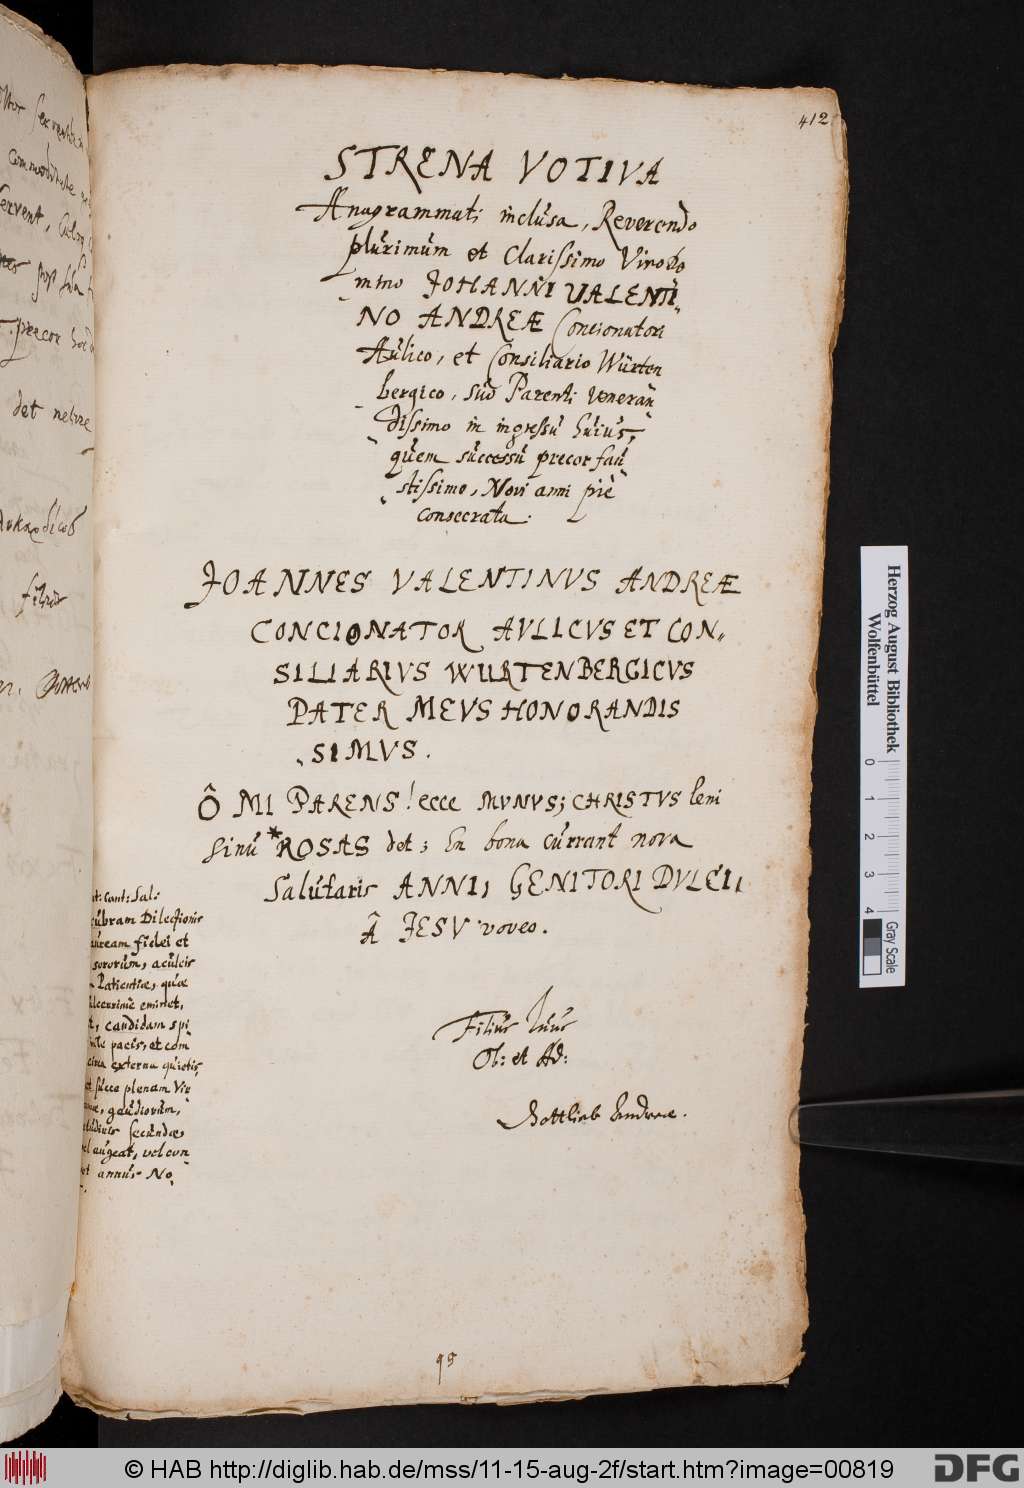 412
STRENA VOTIVA
Anagrammati inclusa, Reverendo
plurimùm et Clarissimo Viro Do
mino JOHANNI VALENTI
NO ANDREÆ Concionatori
Aulico, et Consiliario Würten
bergico, suo Parenti veneran
dissimo in ingressu huius,
quem successu precor fau
stissimo, Novi anni piè
consecrata.
JOANNES VALENTINVS ANDREÆ
CONCIONATOR AVLICVS ET CON„
SILIARIVS WURTENBERGICVS
PATER MEVS HONORANDIS
SIMVS.
Ô MI PARENS! ecce MVNVS; CHRISTVS leni
sinu *ROSAS det; En bona currant nova
Salutaris ANNI, GENITORI DVLCI,
Â JESV voveo.
t: cont: Sal:
ubram Dilectionis
auream fidei et
sororum, aculeis
Patientiæ, quæ
emittet,
t, candidam spi
pacis, et com
externa quietis,
et succo plenam Vir
gaudiorum,
secundæ,
augeat, vel con
annus No
Filius tuus
Ob: et Ad:
Gottlieb Andreæ.
95
det
precor
Herzog August Bibliothek
Wolfenbüttel
0 1 2 3 4
Gray Scale
© HAB http://diglib.hab.de/mss/11-15-aug-2f/start.htm?image=00819
DFG